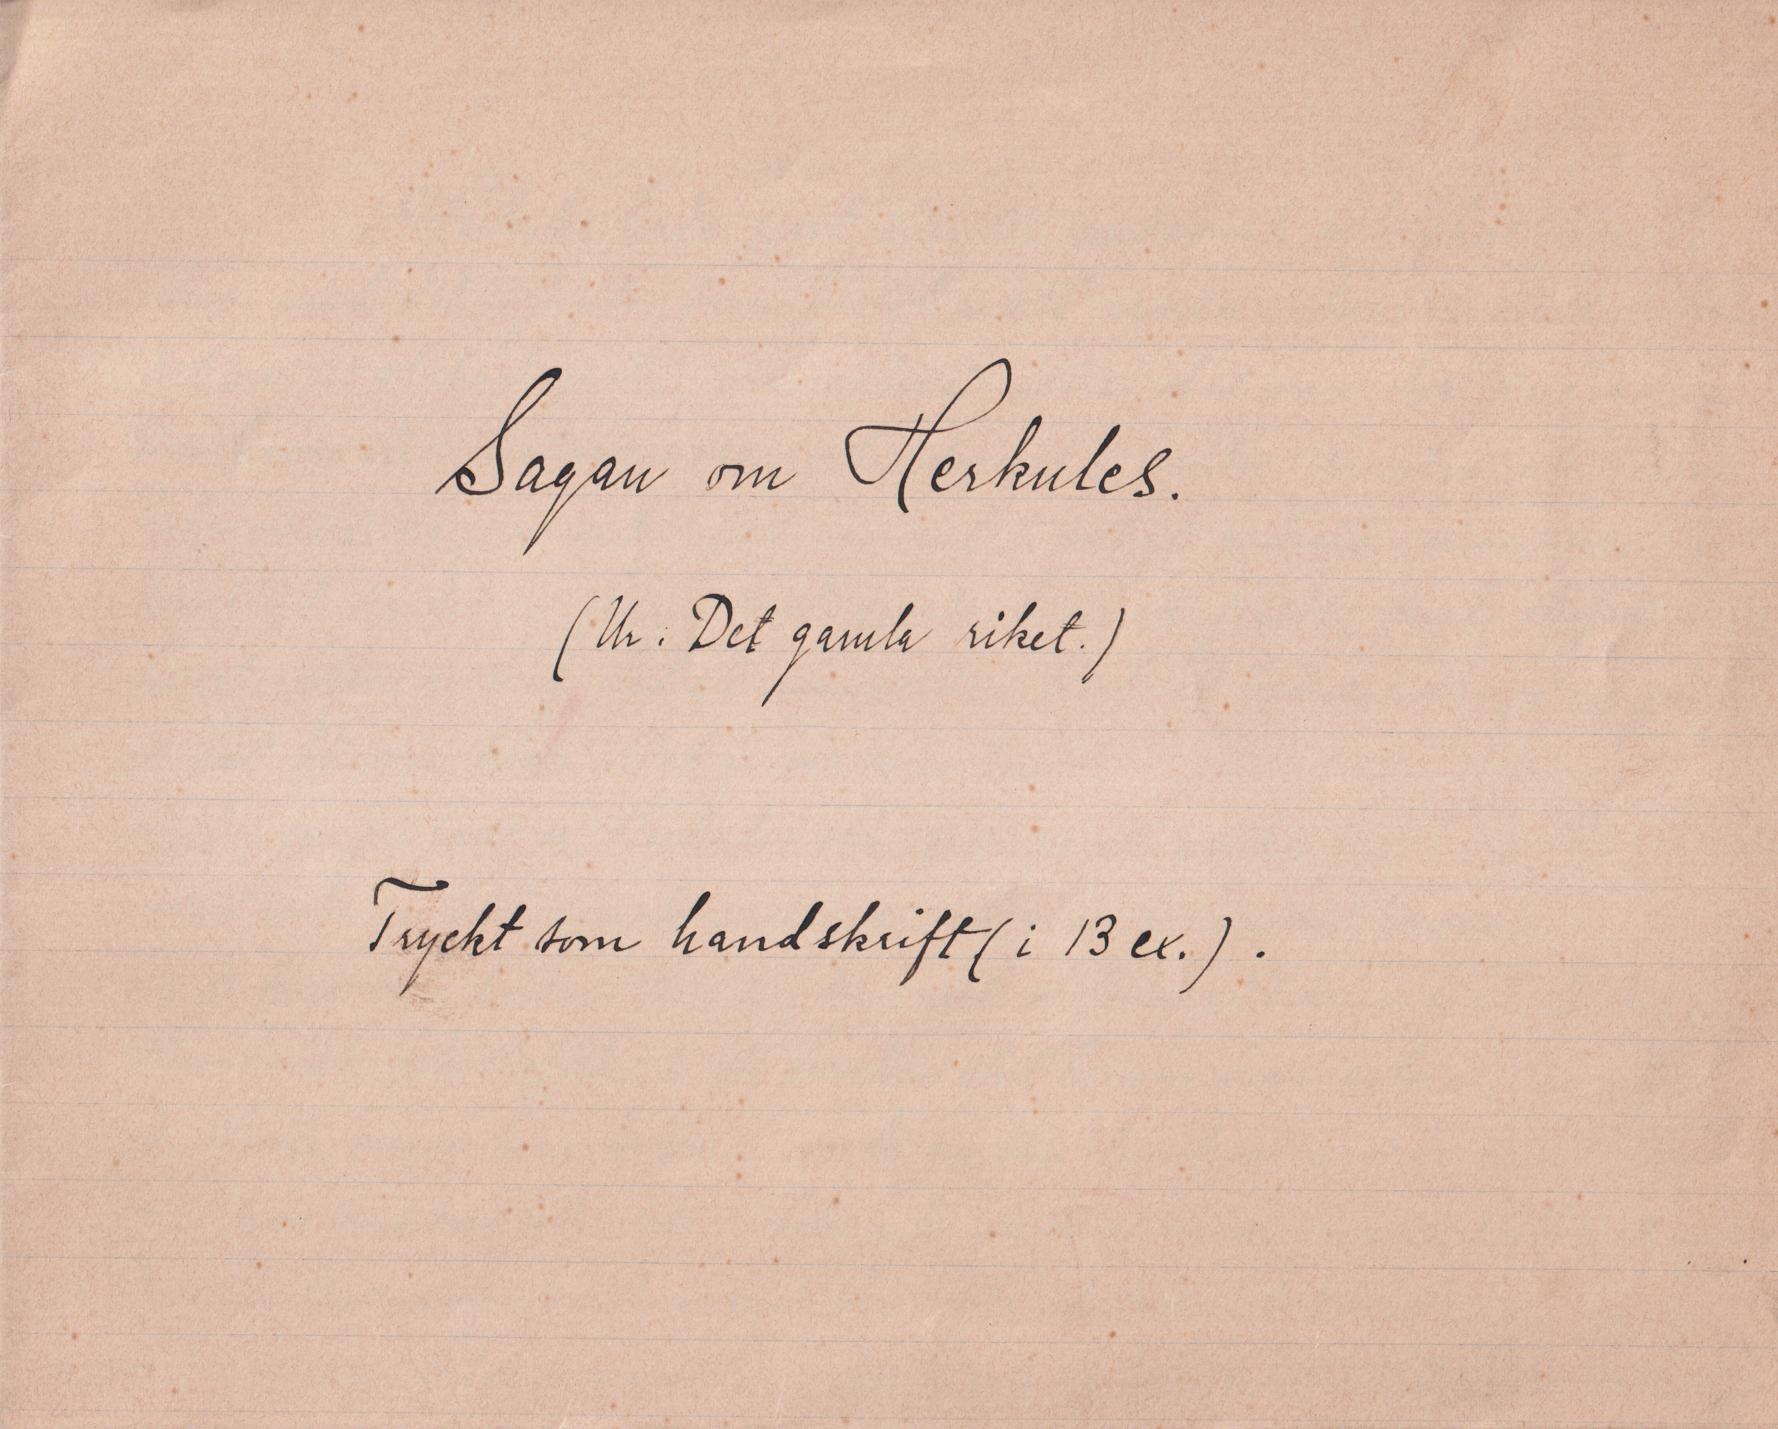 Sagan om Herkules.
(Ur: Det gamla riket.)
Tryckt som handskrift (i 13 ex.).